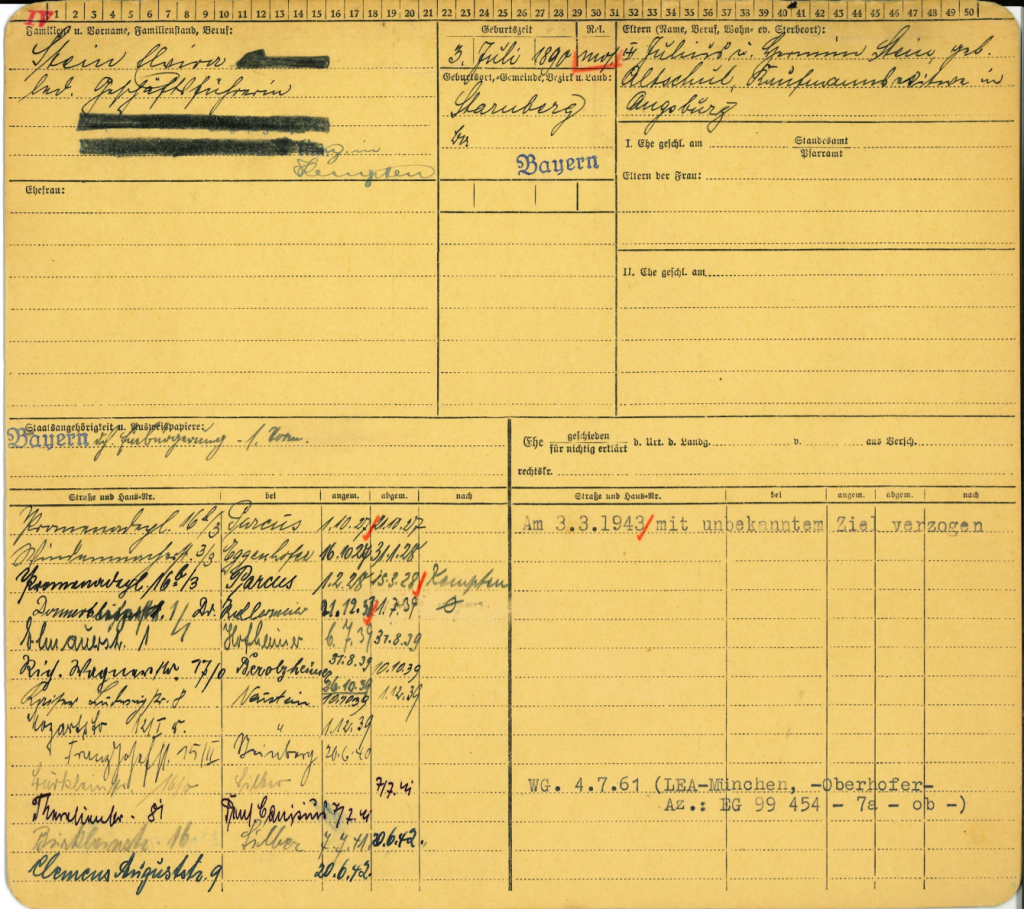 IV
1 2 3 4 5 6 7 8 9 10 11 12 13 14 15 16 17 18 19 20 21 22 23 24 25 26 27 28 29 30 31 32 33 34 35 36 37 38 39 40 41 42 43 44 45 46 47 48 49 50
Familien- u. Vorname, Familienstand, Beruf:
Stein Elvira
led. Geschäftsführerin
Kempten
Ehefrau:
Geburtszeit
Rel.
3. Juli 1890 mos.
Geburtsort, Gemeinde, Bezirk u. Land:
Starnberg
Bayern
Eltern (Name, Beruf, Wohn- ev. Sterbeort):
Julius u. Hermine Stein, geb.
Altschul, Kaufmannswitwe in
Augsburg
I. Ehe geschl. am Standesamt
Pfarramt
Eltern der Frau:
II. Ehe geschl. am
Staatsangehörigkeit u. Ausweispapiere:
Bayern dch Einbürgerung
Ehe geschieden d. Urt. d. Landg. v. aus Versch.
für nichtig erklärt
rechtskr.
Straße und Haus-Nr. bei angem. abgem. nach
Promenadepl. 16b/3 Parcus 1.10.27 11.10.27
Windenmacherst. 3/3 Eggenhofer 16.10.27 31.1.28
Promenadepl. 16b/3 Parcus 1.2.28 15.3.28 Kempten
1/ Dr. Kellermeier 21.12.37 1.7.39
1 Hofheimer 6.7.39 31.8.39
Rich. Wagnerstr. 77/0 Berolzheimer 31.8.39 10.10.39
26.10.39
Kaiser Ludwigstr. 8 Naustein 10.10.39 1.12.39
Mozartstr 12/I r. " 1.12.39
Franz Josefst. 15/II Weinberg 20.6.40
Bürkleinstr. 16/0 Silber 7/7.41
Theresienstr. 81 7/7.41
Bürkleinstr. 16 Silber 7.7.41 20.6.42.
Clemens Auguststr. 9 20.6.42.
Straße und Haus-Nr. bei angem. abgem. nach
Am 3.3.1943 mit unbekanntem Ziel verzogen
WG. 4.7.61 (LEA-München, -Oberhofer-
Az.: EG 99 454 - 7a - ob -)